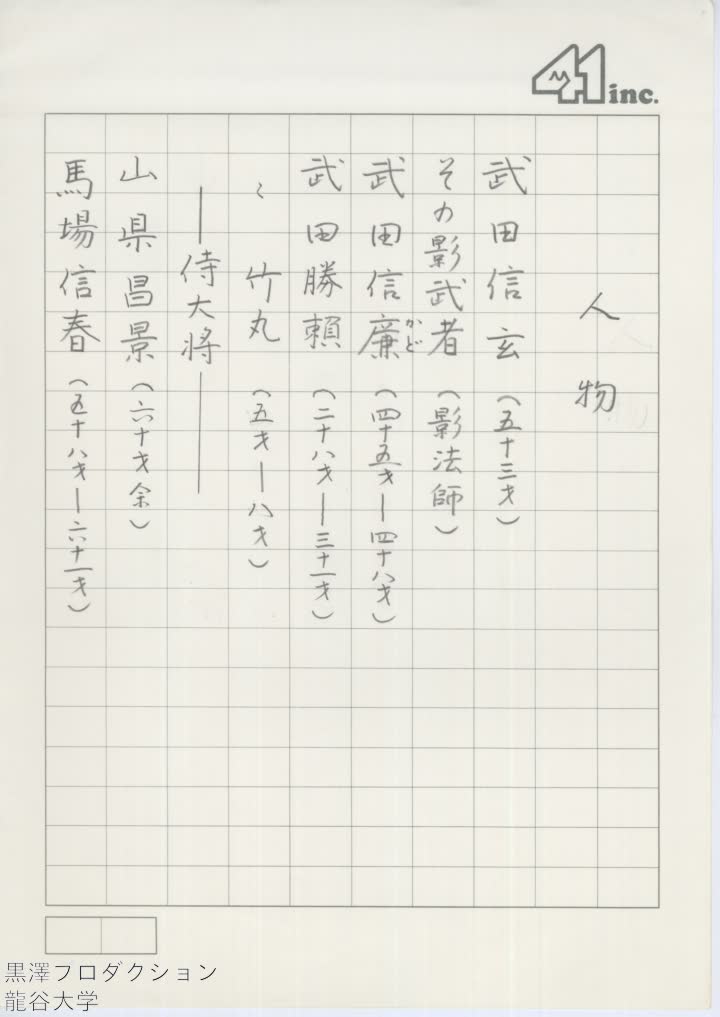 41 inc.
人物
武田信玄（五十三才）
その影武者（影法師）
武田信廉（四十五才ー四十八才）
かど
武田勝頼（二十八才ー三十一才）
〻 竹丸（五才ー八才）
――侍大将――
山県昌景（六十才余）
馬場信春（五十八才ー六十一才）
黒澤フロダクション
龍谷大学